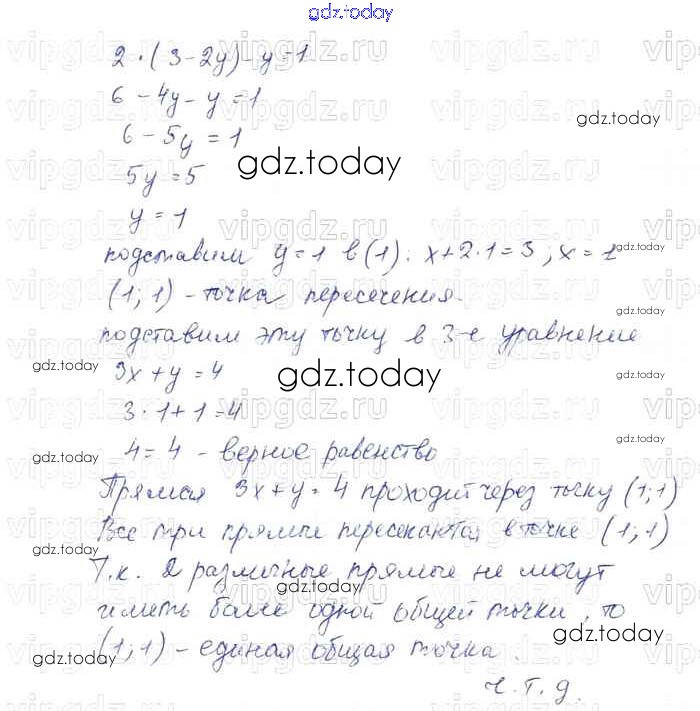 gdz.today
2 · (3 - 2y) - y = 1
6 - 4y - y = 1
6 - 5y = 1
gdz.today
gdz.today
5y = 5
y = 1
подставим y = 1 в (1): x + 2·1 = 3; x = 1
gdz.today
(1; 1) - точка пересечения.
gdz.today
подставим эту точку в 3-е уравнение
3x + y = 4
gdz.today
gdz.today
gdz.today
3·1 + 1 = 4
4 = 4 - верное равенство
gdz.today
gdz.today
Прямая 3x + y = 4 проходит через точку (1; 1)
gdz.today
Все три прямые пересекаются в точке (1; 1)
gdz.today
Т.к. 2 различные прямые не могут
gdz.today
иметь более одной общей точки, то
gdz.today
(1; 1) - единая общая точка.
gdz.today
ч.т.д.
gdz.today